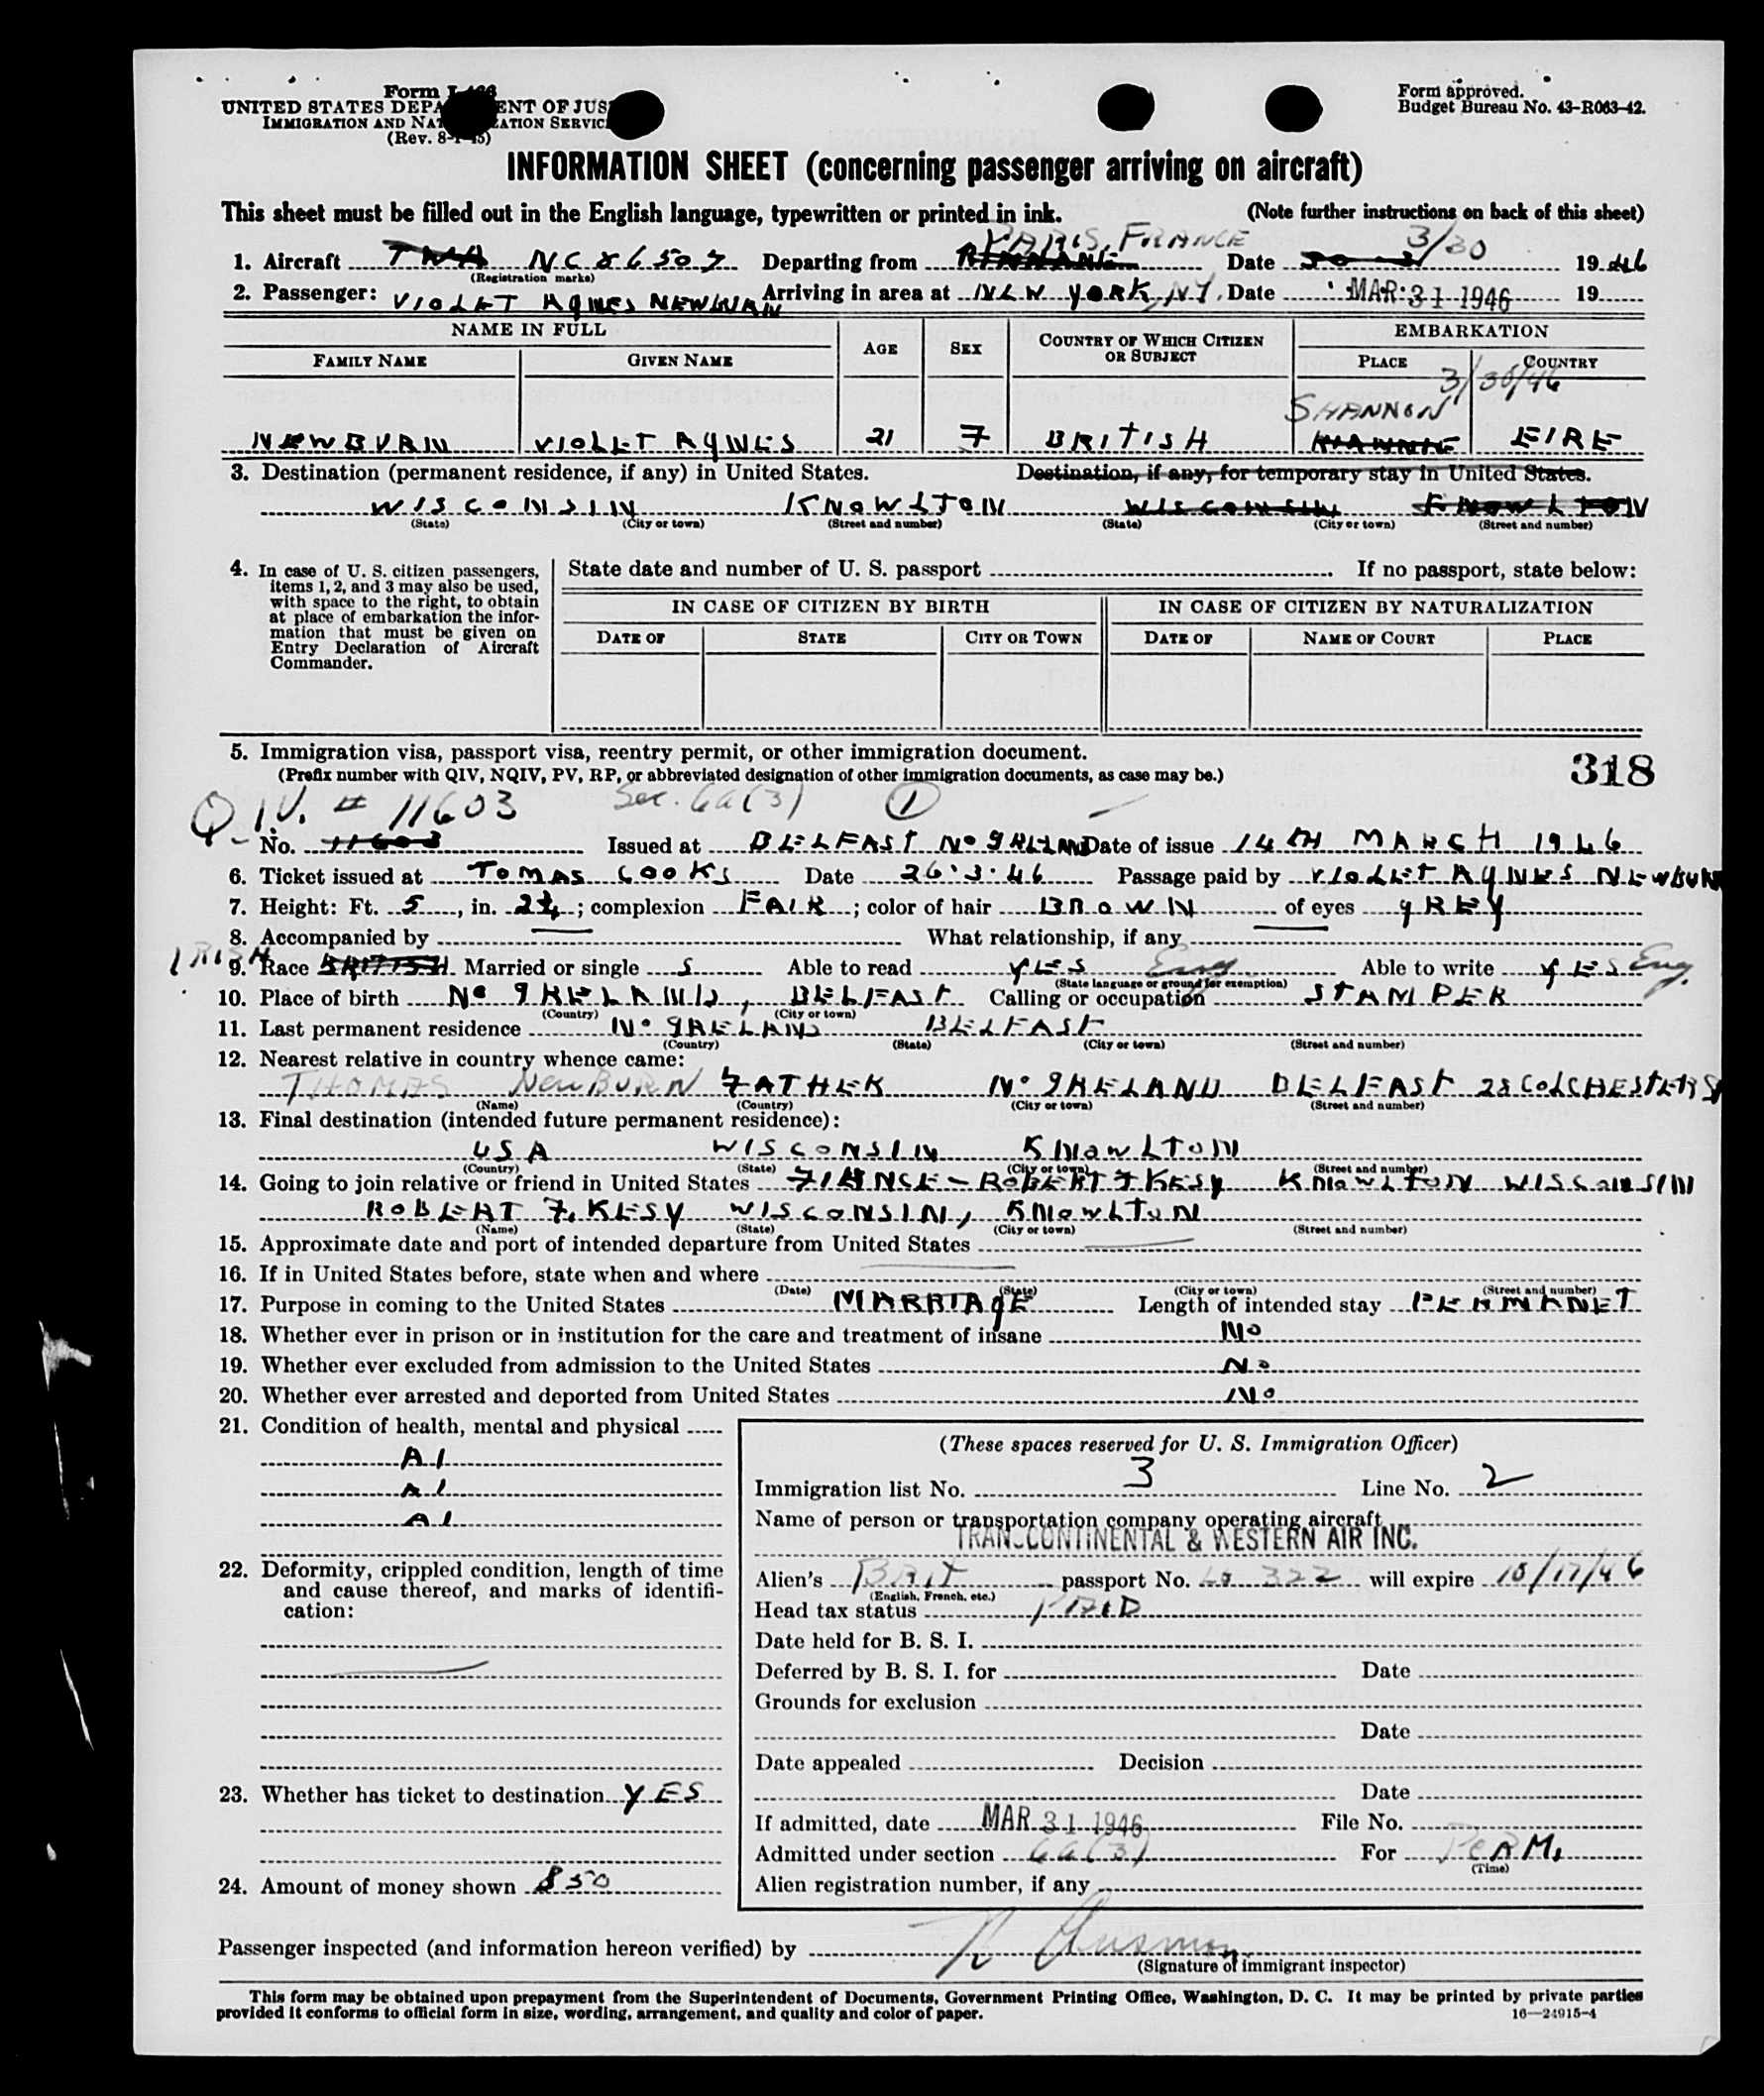 Form I-466
UNITED STATES DEPA ENT OF JUS
IMMIGRATION AND NAT ATION SERVIC
(Rev. 8-1-45)
Form approved.
Budget Bureau No. 43-R063-42.
INFORMATION SHEET (concerning passenger arriving on aircraft)
This sheet must be filled out in the English language, typewritten or printed in ink. (Note further instructions on back of this sheet)
PARIS, FRANCE 3/30
1. Aircraft TWA NC86507 Departing from Date 19 46
(Registration marks)
2. Passenger: VIOLET AGNES NEWBURN Arriving in area at NEW YORK, NY. Date MAR 31 1946 19
NAME IN FULL AGE SEX COUNTRY OF WHICH CITIZEN OR SUBJECT EMBARKATION
FAMILY NAME GIVEN NAME PLACE COUNTRY
3/30/46
SHANNON
NEWBURN VIOLET AGNES 21 F BRITISH EIRE
3. Destination (permanent residence, if any) in United States. Destination, if any, for temporary stay in United States.
WISCONSIN KNOWLTON WISCONSIN KNOWLTON
(State) (City or town) (Street and number) (State) (City or town) (Street and number)
4. In case of U. S. citizen passengers, items 1, 2, and 3 may also be used, with space to the right, to obtain at place of embarkation the information that must be given on Entry Declaration of Aircraft Commander.
State date and number of U. S. passport If no passport, state below:
IN CASE OF CITIZEN BY BIRTH IN CASE OF CITIZEN BY NATURALIZATION
DATE OF STATE CITY OR TOWN DATE OF NAME OF COURT PLACE
5. Immigration visa, passport visa, reentry permit, or other immigration document.
(Prefix number with QIV, NQIV, PV, RP, or abbreviated designation of other immigration documents, as case may be.)
318
Q.I.V. # 11603 Sec. 6a(3) 1
No. 11603 Issued at BELFAST No IRELAND Date of issue 14TH MARCH 1946
6. Ticket issued at TOMAS COOKS Date 26.3.46 Passage paid by VIOLET AGNES NEWBURN
7. Height: Ft. 5, in. 2¼; complexion FAIR; color of hair BROWN of eyes GREY
8. Accompanied by What relationship, if any
IRISH
9. Race BRITISH Married or single S Able to read YES Eng. Able to write YES Eng.
(State language or ground for exemption)
10. Place of birth No IRELAND, BELFAST Calling or occupation STAMPER
(Country) (City or town)
11. Last permanent residence No IRELAND BELFAST
(Country) (State) (City or town) (Street and number)
12. Nearest relative in country whence came:
THOMAS NEWBURN FATHER No IRELAND BELFAST 28 COLCHESTER ST
(Name) (Country) (City or town) (Street and number)
13. Final destination (intended future permanent residence):
USA WISCONSIN KNOWLTON
(Country) (State) (City or town) (Street and number)
14. Going to join relative or friend in United States FIANCE - ROBERT F KESY KNOWLTON WISCONSIN
ROBERT F. KESY WISCONSIN, KNOWLTON
(Name) (State) (City or town) (Street and number)
15. Approximate date and port of intended departure from United States
16. If in United States before, state when and where
(Date) (State) (City or town) (Street and number)
17. Purpose in coming to the United States MARRIAGE Length of intended stay PERMANET
18. Whether ever in prison or in institution for the care and treatment of insane No
19. Whether ever excluded from admission to the United States No
20. Whether ever arrested and deported from United States No
21. Condition of health, mental and physical
A1
A1
A1
22. Deformity, crippled condition, length of time and cause thereof, and marks of identification:
23. Whether has ticket to destination YES
24. Amount of money shown $50
(These spaces reserved for U. S. Immigration Officer)
Immigration list No. 3 Line No. 2
Name of person or transportation company operating aircraft
TRANSCONTINENTAL & WESTERN AIR INC.
Alien's BRIT passport No. 322 will expire 10/17/46
(English, French, etc.)
Head tax status PAID
Date held for B. S. I.
Deferred by B. S. I. for Date
Grounds for exclusion
Date
Date appealed Decision
Date
If admitted, date MAR 31 1946 File No.
Admitted under section 6a(3) For PERM.
(Time)
Alien registration number, if any
Passenger inspected (and information hereon verified) by
(Signature of immigrant inspector)
This form may be obtained upon prepayment from the Superintendent of Documents, Government Printing Office, Washington, D. C. It may be printed by private parties
provided it conforms to official form in size, wording, arrangement, and quality and color of paper. 16—24915-4